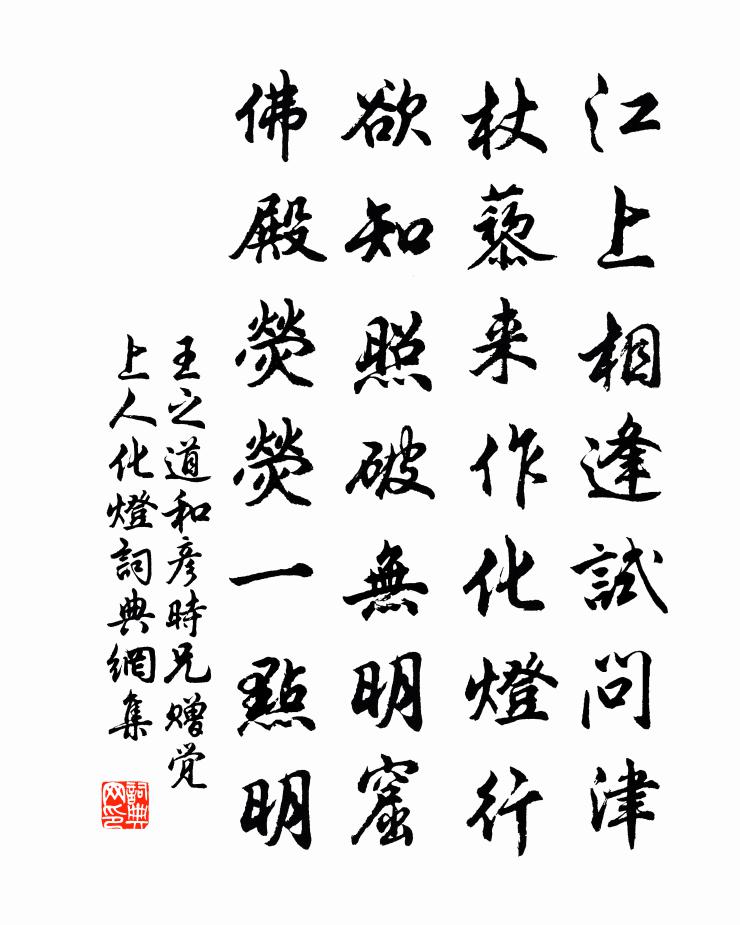 江上相逢試問津
杖藜来作化燈行
欲知照破無明窟
佛殿熒熒一點明
王之道和彦時兄赠觉
上人化燈詞典網集
詞典
网印